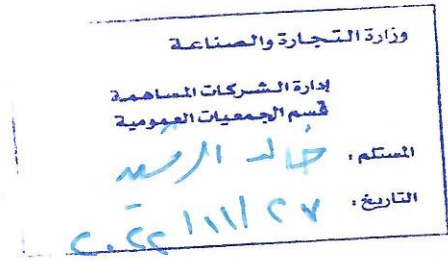 وزارة التجارة والصناعة
إدارة الشركات المساهمة
قسم الجمعيات العمومية
المستلم : خالد الرشيد
التاريخ : ٢٧ / ١١ / ٢٠٢٢